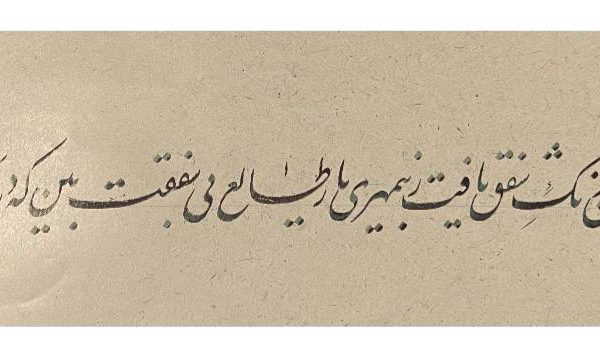 رنگ شفق یافت ز بیمهری یار طالع بی شفقت بین که در